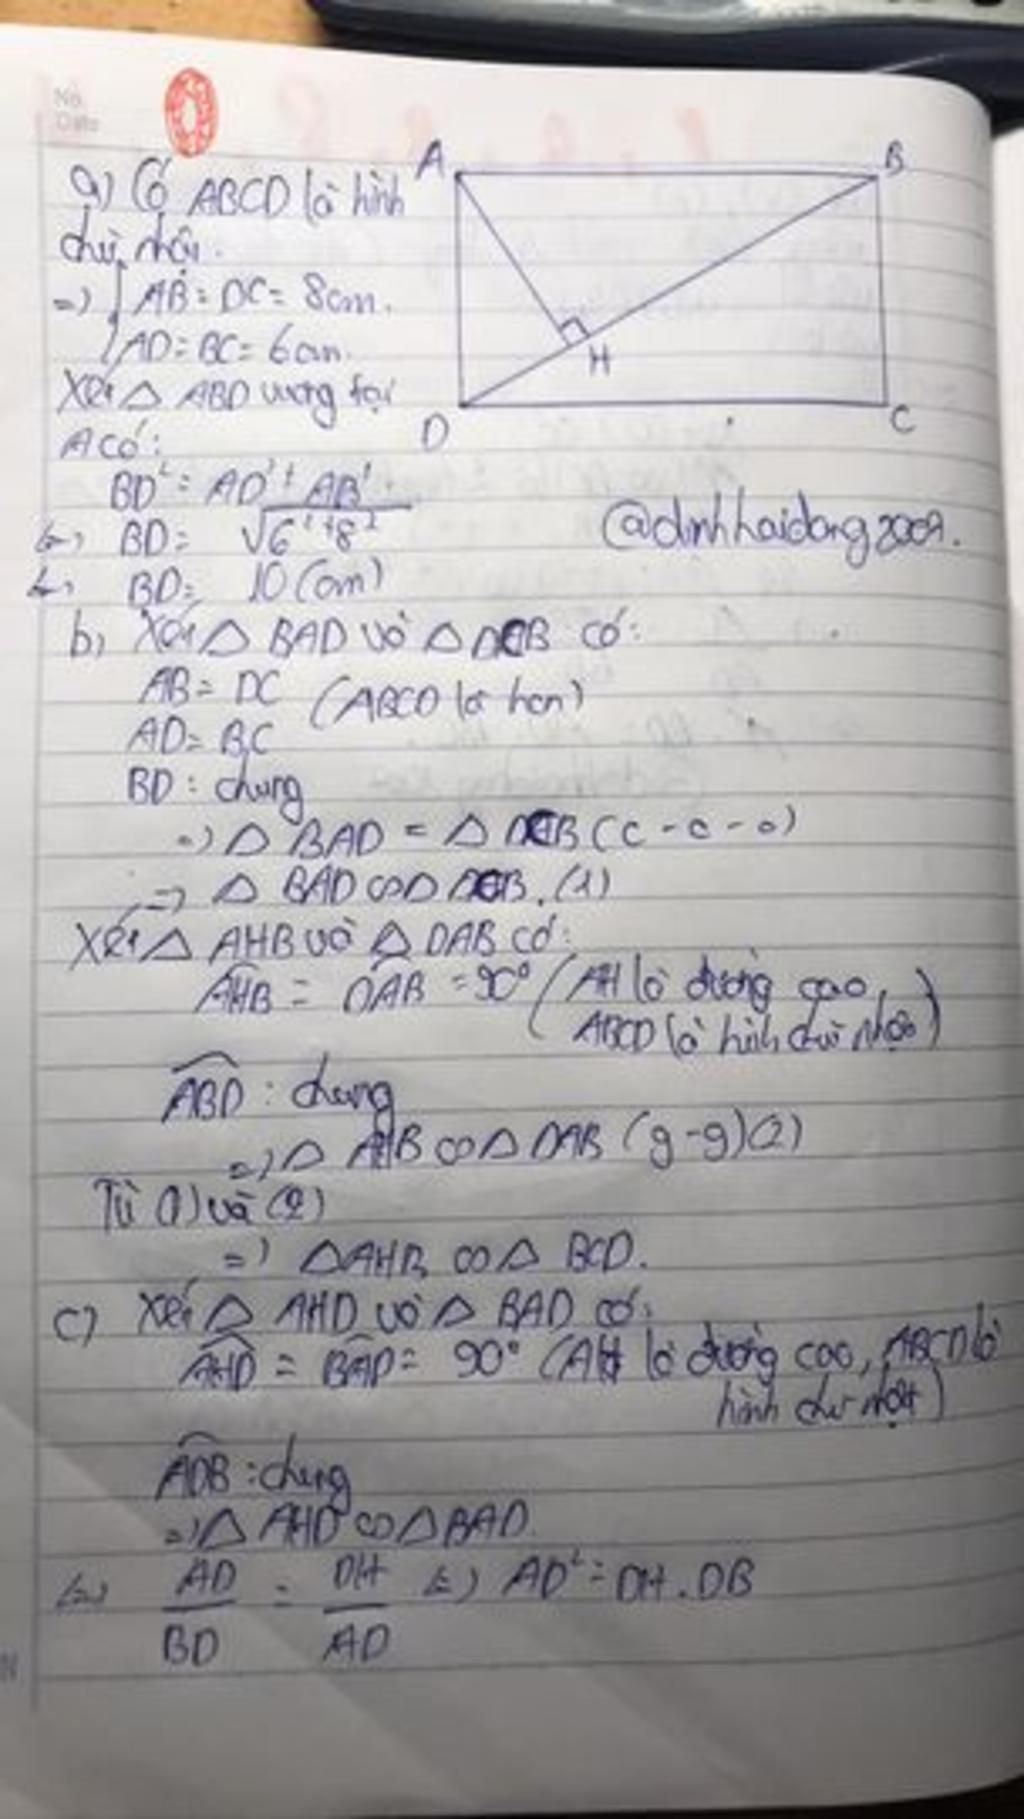 No.
Date
a) Có ABCD là hình
chữ nhật.
=> { AB = DC = 8cm.
AD = BC = 6cm.
A
B
H
D
C
Xét △ ABD vuông tại
A có:
BD² = AD² + AB²
<=> BD = √6² + 8²
<=> BD = 10 (cm)
@dinhhaidang2009.
b) Xét △ BAD và △ DCB có:
AB = DC (ABCD là hcn)
AD = BC
BD : chung
=> △ BAD = △ DCB (c - c - c)
=> △ BAD ∽ △ DCB. (1)
Xét △ AHB và △ DAB có:
AHB = DAB = 90° (AH là đường cao,
ABCD là hình chữ nhật)
ABD : chung
=> △ AHB ∽ △ DAB (g - g) (2)
Từ (1) và (2)
=> △ AHB ∽ △ BCD.
c) Xét △ AHD và △ BAD có:
AHD = BAD = 90° (AH là đường cao, ABCD là
hình chữ nhật)
ADB : chung
=> △ AHD ∽ △ BAD.
<=> AD/BD = DH/AD <=> AD² = DH . DB